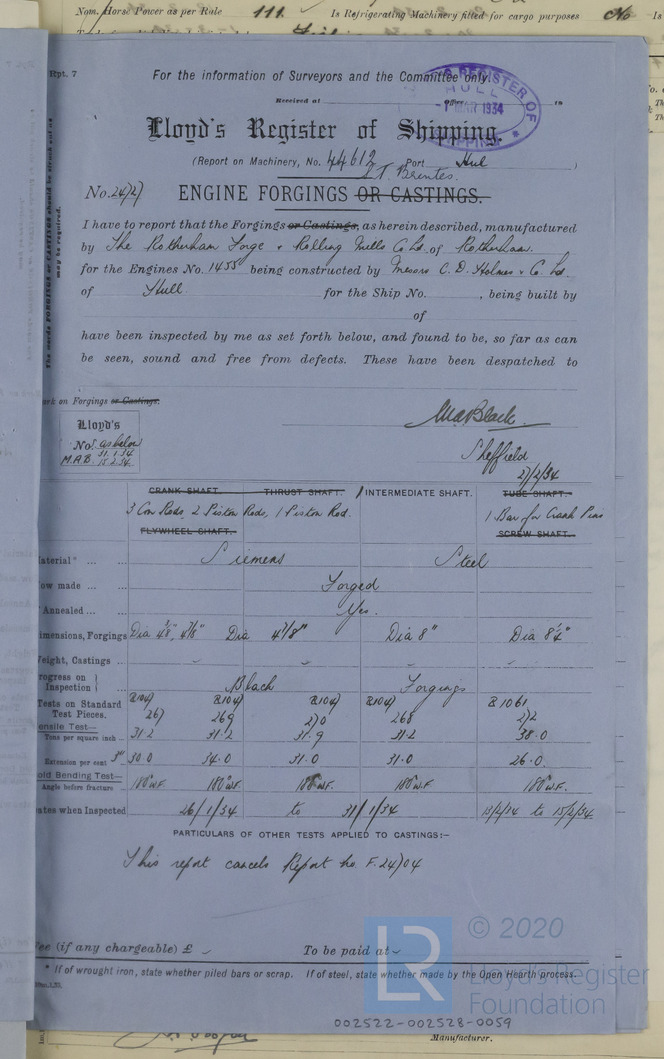 Nom. Horse Power as per Rule 111. Is Refrigerating Machinery fitted for cargo purposes No Is
Rpt. 7
For the information of Surveyors and the Committee only.
Received at Office 19
HULL
REGISTER OF
SHIPPING
MAR 1934
Lloyd's Register of Shipping.
(Report on Machinery, No. 44612 Port Hull )
S.T. Brontes.
No. 24727 ENGINE FORGINGS OR CASTINGS.
I have to report that the Forgings or Castings, as herein described, manufactured
by The Rotherham Forge & Rolling Mills Co Ld of Rotherham
for the Engines No. 1455 being constructed by Messrs C. D. Holmes & Co. Ld.
of Hull for the Ship No. , being built by
of
have been inspected by me as set forth below, and found to be, so far as can
be seen, sound and free from defects. These have been despatched to
The words FORGINGS or CASTINGS should be struck out as
may be required.
ark on Forgings or Castings.
Lloyd's
No. as below
M.A.B. 31.1.34
15.2.34
M.A. Black
Sheffield
27/2/34
CRANK SHAFT. THRUST SHAFT. INTERMEDIATE SHAFT. TUBE SHAFT.
3 Con Rods, 2 Piston Rods, 1 Piston Rod. 1 Bar for Crank Pins
FLYWHEEL SHAFT. SCREW SHAFT.
aterial * ... ... Siemens Steel
ow made ... Forged
Annealed ... ... Yes.
imensions, Forgings Dia 4⅞" Dia 4⅞" Dia 8" Dia
eight, Castings ...
rogress on
Inspection } ... Black Forgings
ests on Standard
Test Pieces. 267 269 270 268 272
ensile Test—
Tons per square inch ... 31.2 31.2 31.9 31.2 38.0
Extension per cent 3" 30.0 34.0 31.0 31.0 26.0.
old Bending Test—
Angle before fracture ... 180° W.F. 180° W.F. 180° W.F. 180° W.F. 180° W.F.
ates when Inspected 26/1/34 to 31/1/34 to 15/2/34
PARTICULARS OF OTHER TESTS APPLIED TO CASTINGS:—
This report cancels Report no. F. 24704
ee (if any chargeable) £ To be paid at
* If of wrought iron, state whether piled bars or scrap. If of steel, state whether made by the Open Hearth process.
© 2020
LR
Lloyd's Register
Foundation
002522-002528-0059
Manufacturer.